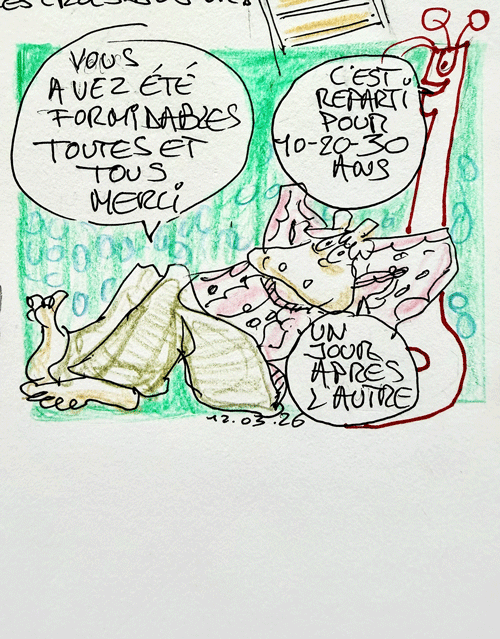 VOUS
AVEZ ÉTÉ
FORMIDABLES
TOUTES ET
TOUS
MERCI
C'EST
REPARTI
POUR
10-20-30
ANS
UN
JOUR
APRES
L'AUTRE
12.03.26